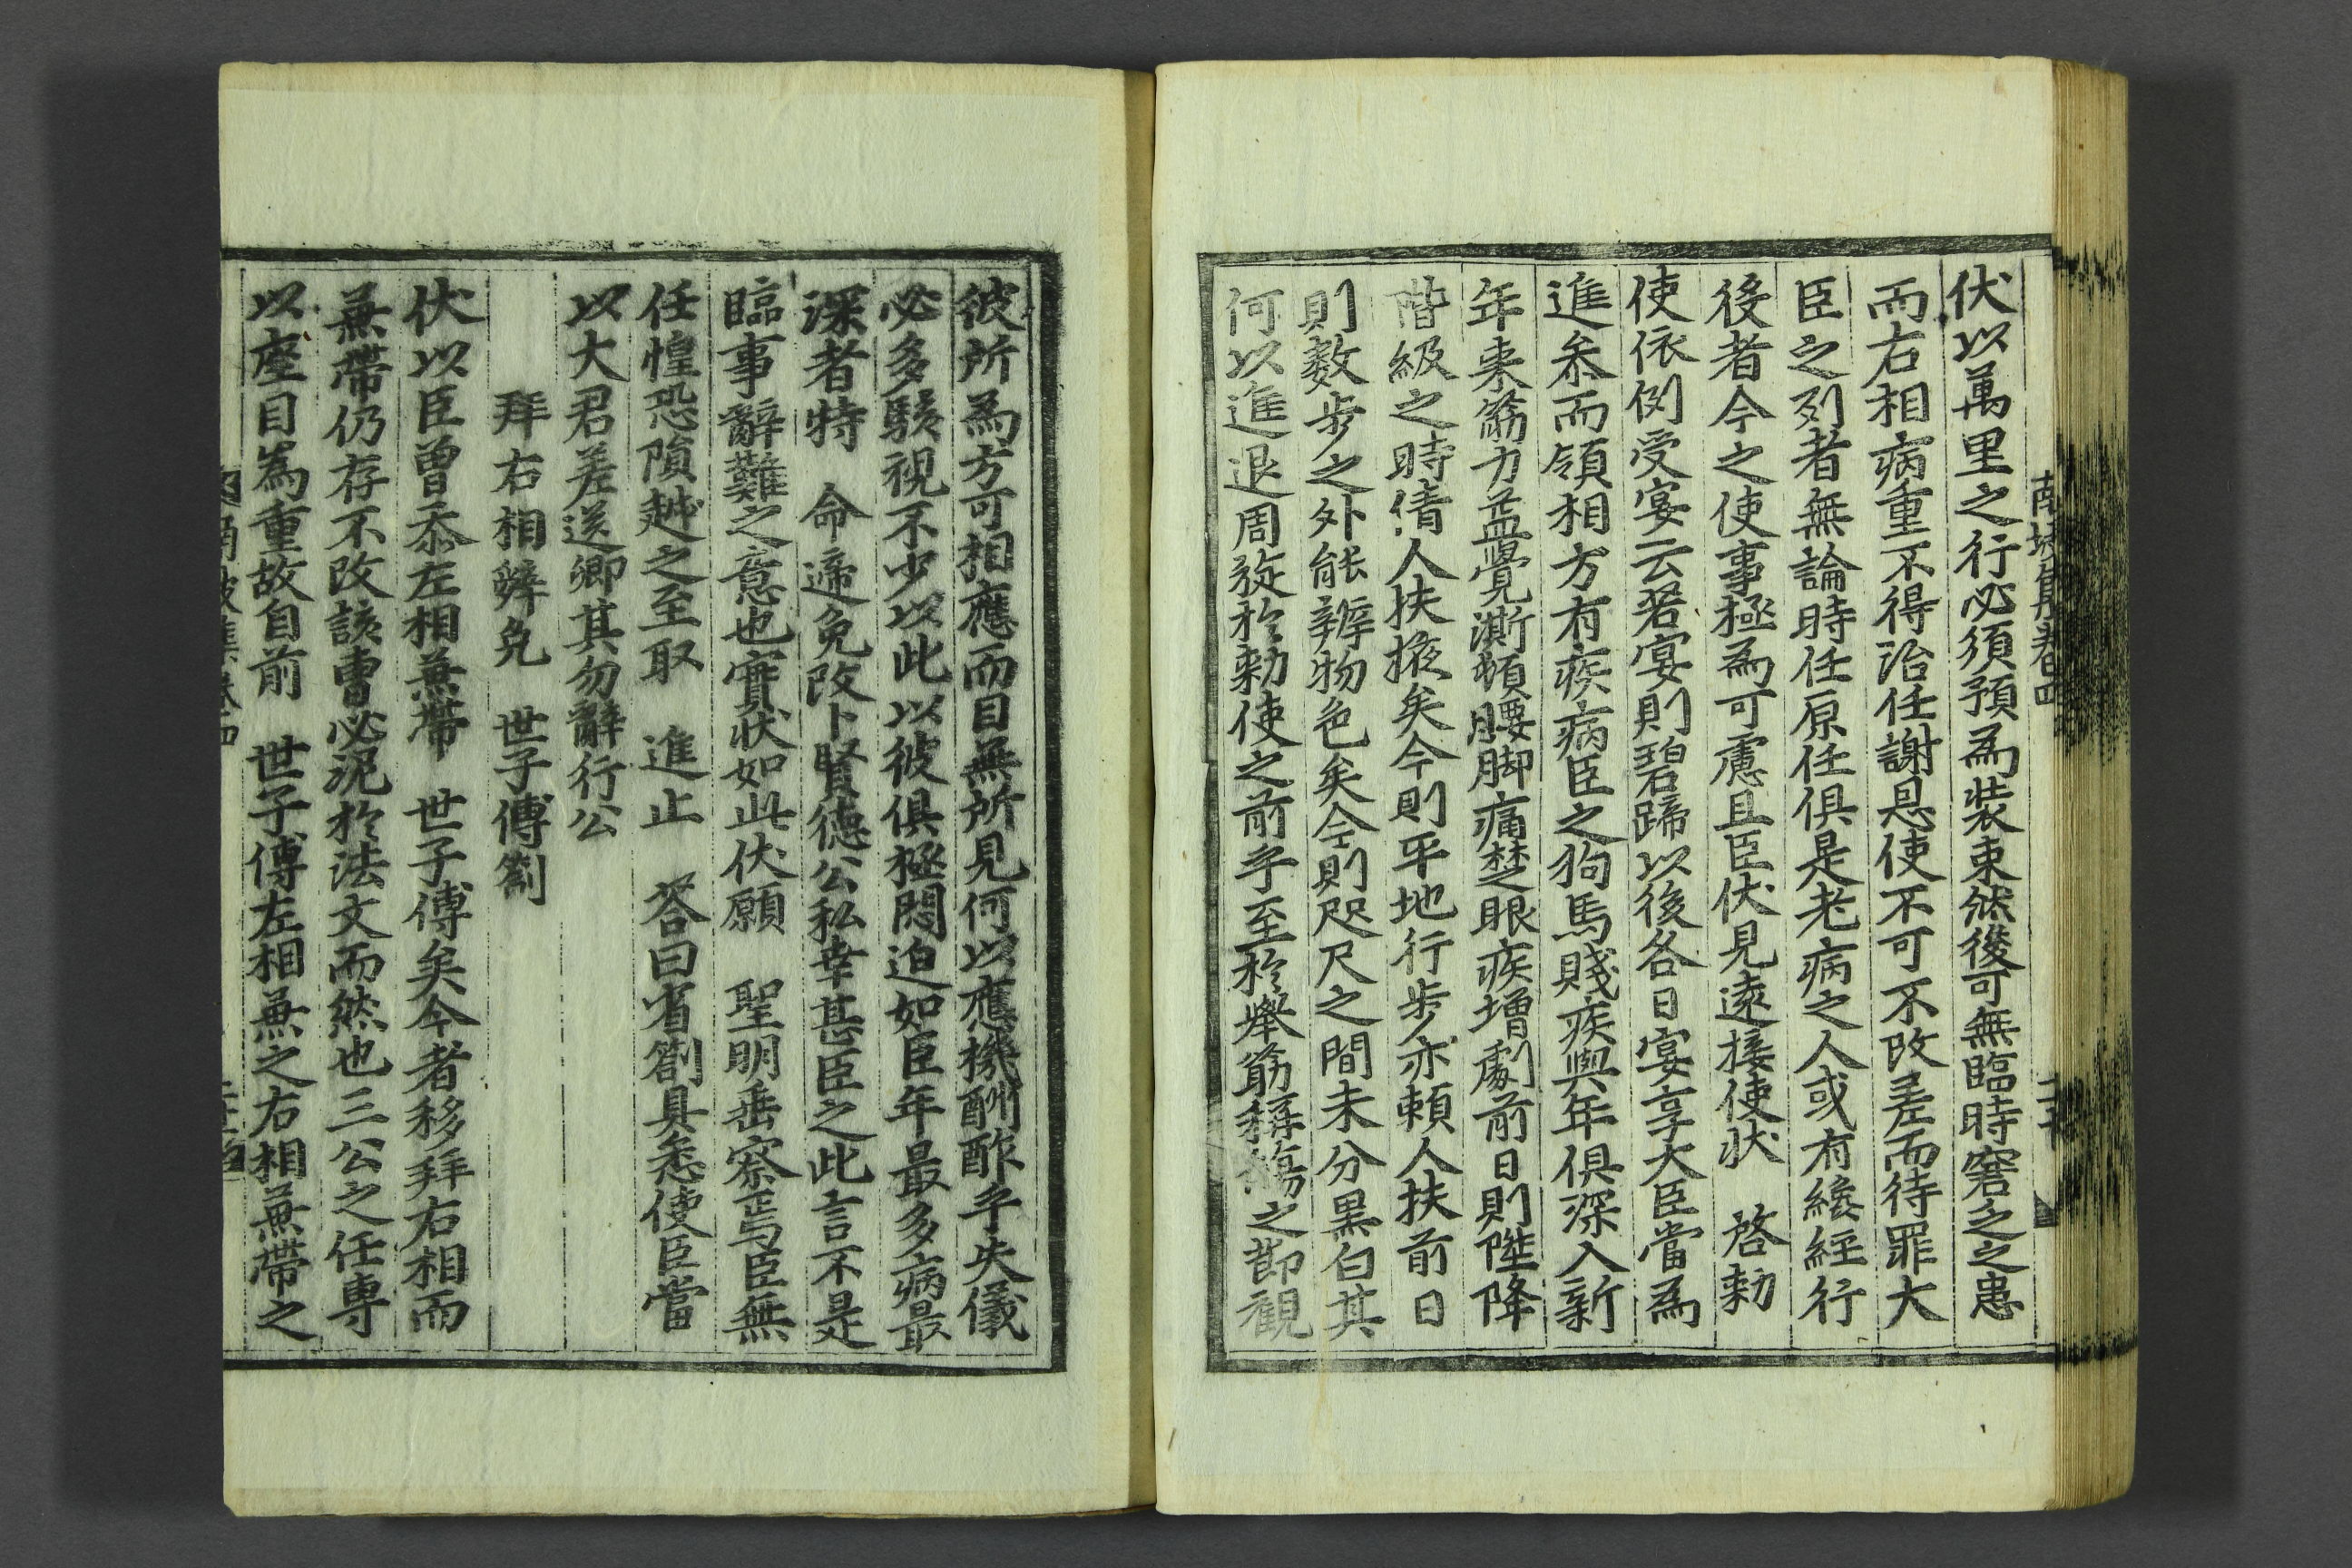 伏以萬里之行必須預爲裝束然後可無臨時窘乏之患
而右相病重不得治任謝恩使不可不改差而待罪大
臣之列者無論時任原任俱是老病之人或有纔經行
後者今之使事極爲可慮且臣伏見遠接使狀 啓勅
使依例受宴云若宴則碧蹄以後各日宴享大臣當爲
進參而領相方有疾病臣之狗馬賤疾與年俱深入新
年來筋力益覺澌頓腰脚痛楚眼疾增劇前日則陞降
階級之時倩人扶掖矣今則平地行步亦賴人扶前日
則數步之外能辨物色矣今則咫尺之間未分黑白其
何以進退周旋於勅使之前乎至於擧筯稱觴之節觀
彼所爲方可相應而目無所見何以應機酬酢乎失儀
必多駭視不少以此以彼俱極悶迫如臣年最多病最
深者特 命遞免改卜賢德公私幸甚臣之此言不是
臨事辭難之意也實狀如此伏願 聖明垂察焉臣無
任惶恐隕越之至取 進止 答曰省箚具悉使臣當
以大君差送卿其勿辭行公
拜右相辭免 世子傅箚
伏以臣曾忝左相兼帶 世子傅矣今者移拜右相而
兼帶仍存不改該曹必泥於法文而然也三公之任專
以座目爲重故自前 世子傅左相兼之右相兼帶之